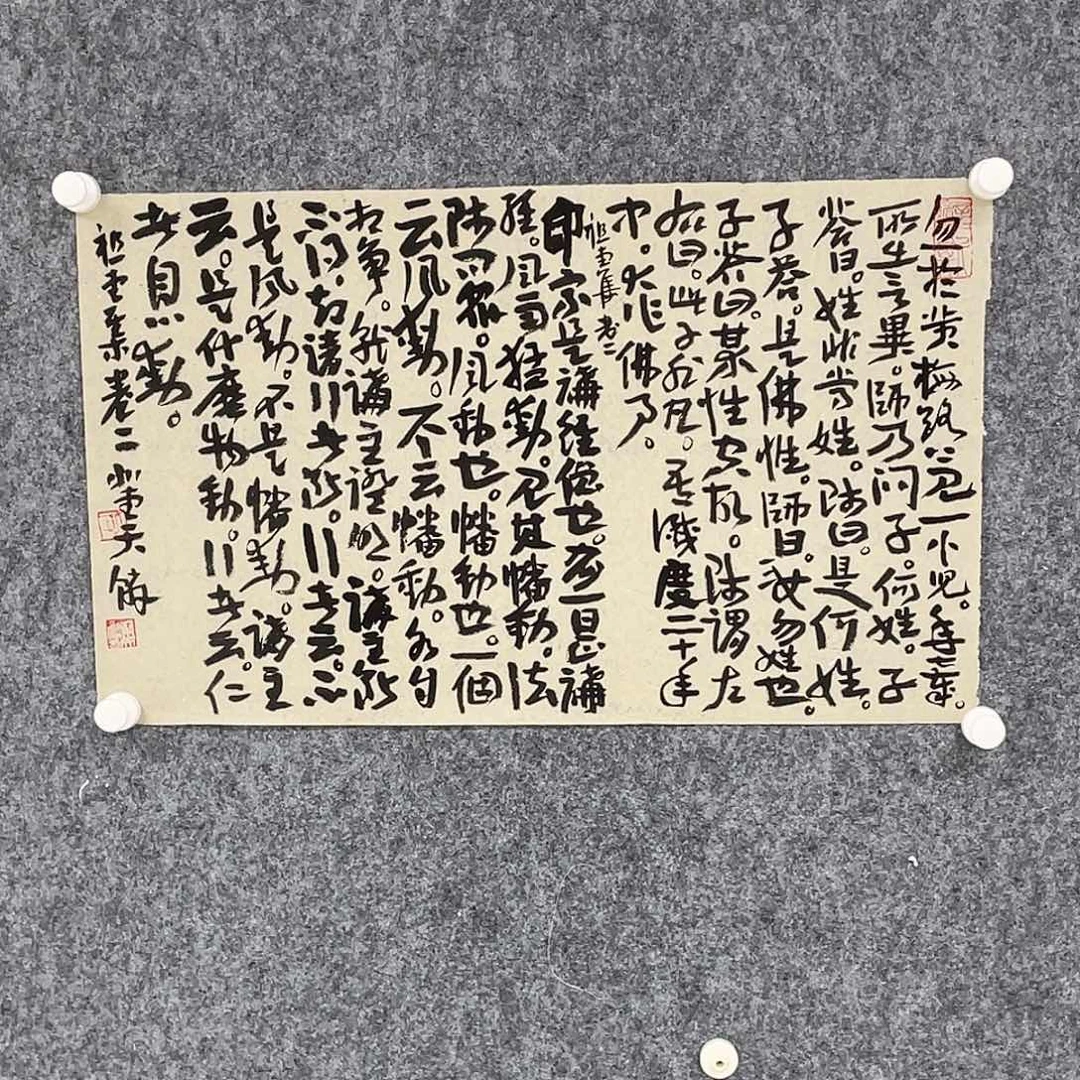 忽於黃梅路上見一小兒。年七歲。
所出言異。師乃問子。何姓。子
答曰。姓非常姓。師曰。是何姓。
子答。是佛性。師曰。汝勿姓也。
子答曰。其性空故。師謂左
右曰。此子非凡。吾滅度二十年
中。大作佛事。
祖堂集卷二
印宗是講經僧也。有一日正講
經。風雨猛動。見其幡動。法
師問眾。風動也。幡動也。一個
云風動。一个云幡動。各自
相爭。就講主證明。講主斷
不得。却請行者斷。行者云。不
是風動。不是幡動。講主
云。是什麼物動。行者云。仁
者自心動。
祖堂集卷二